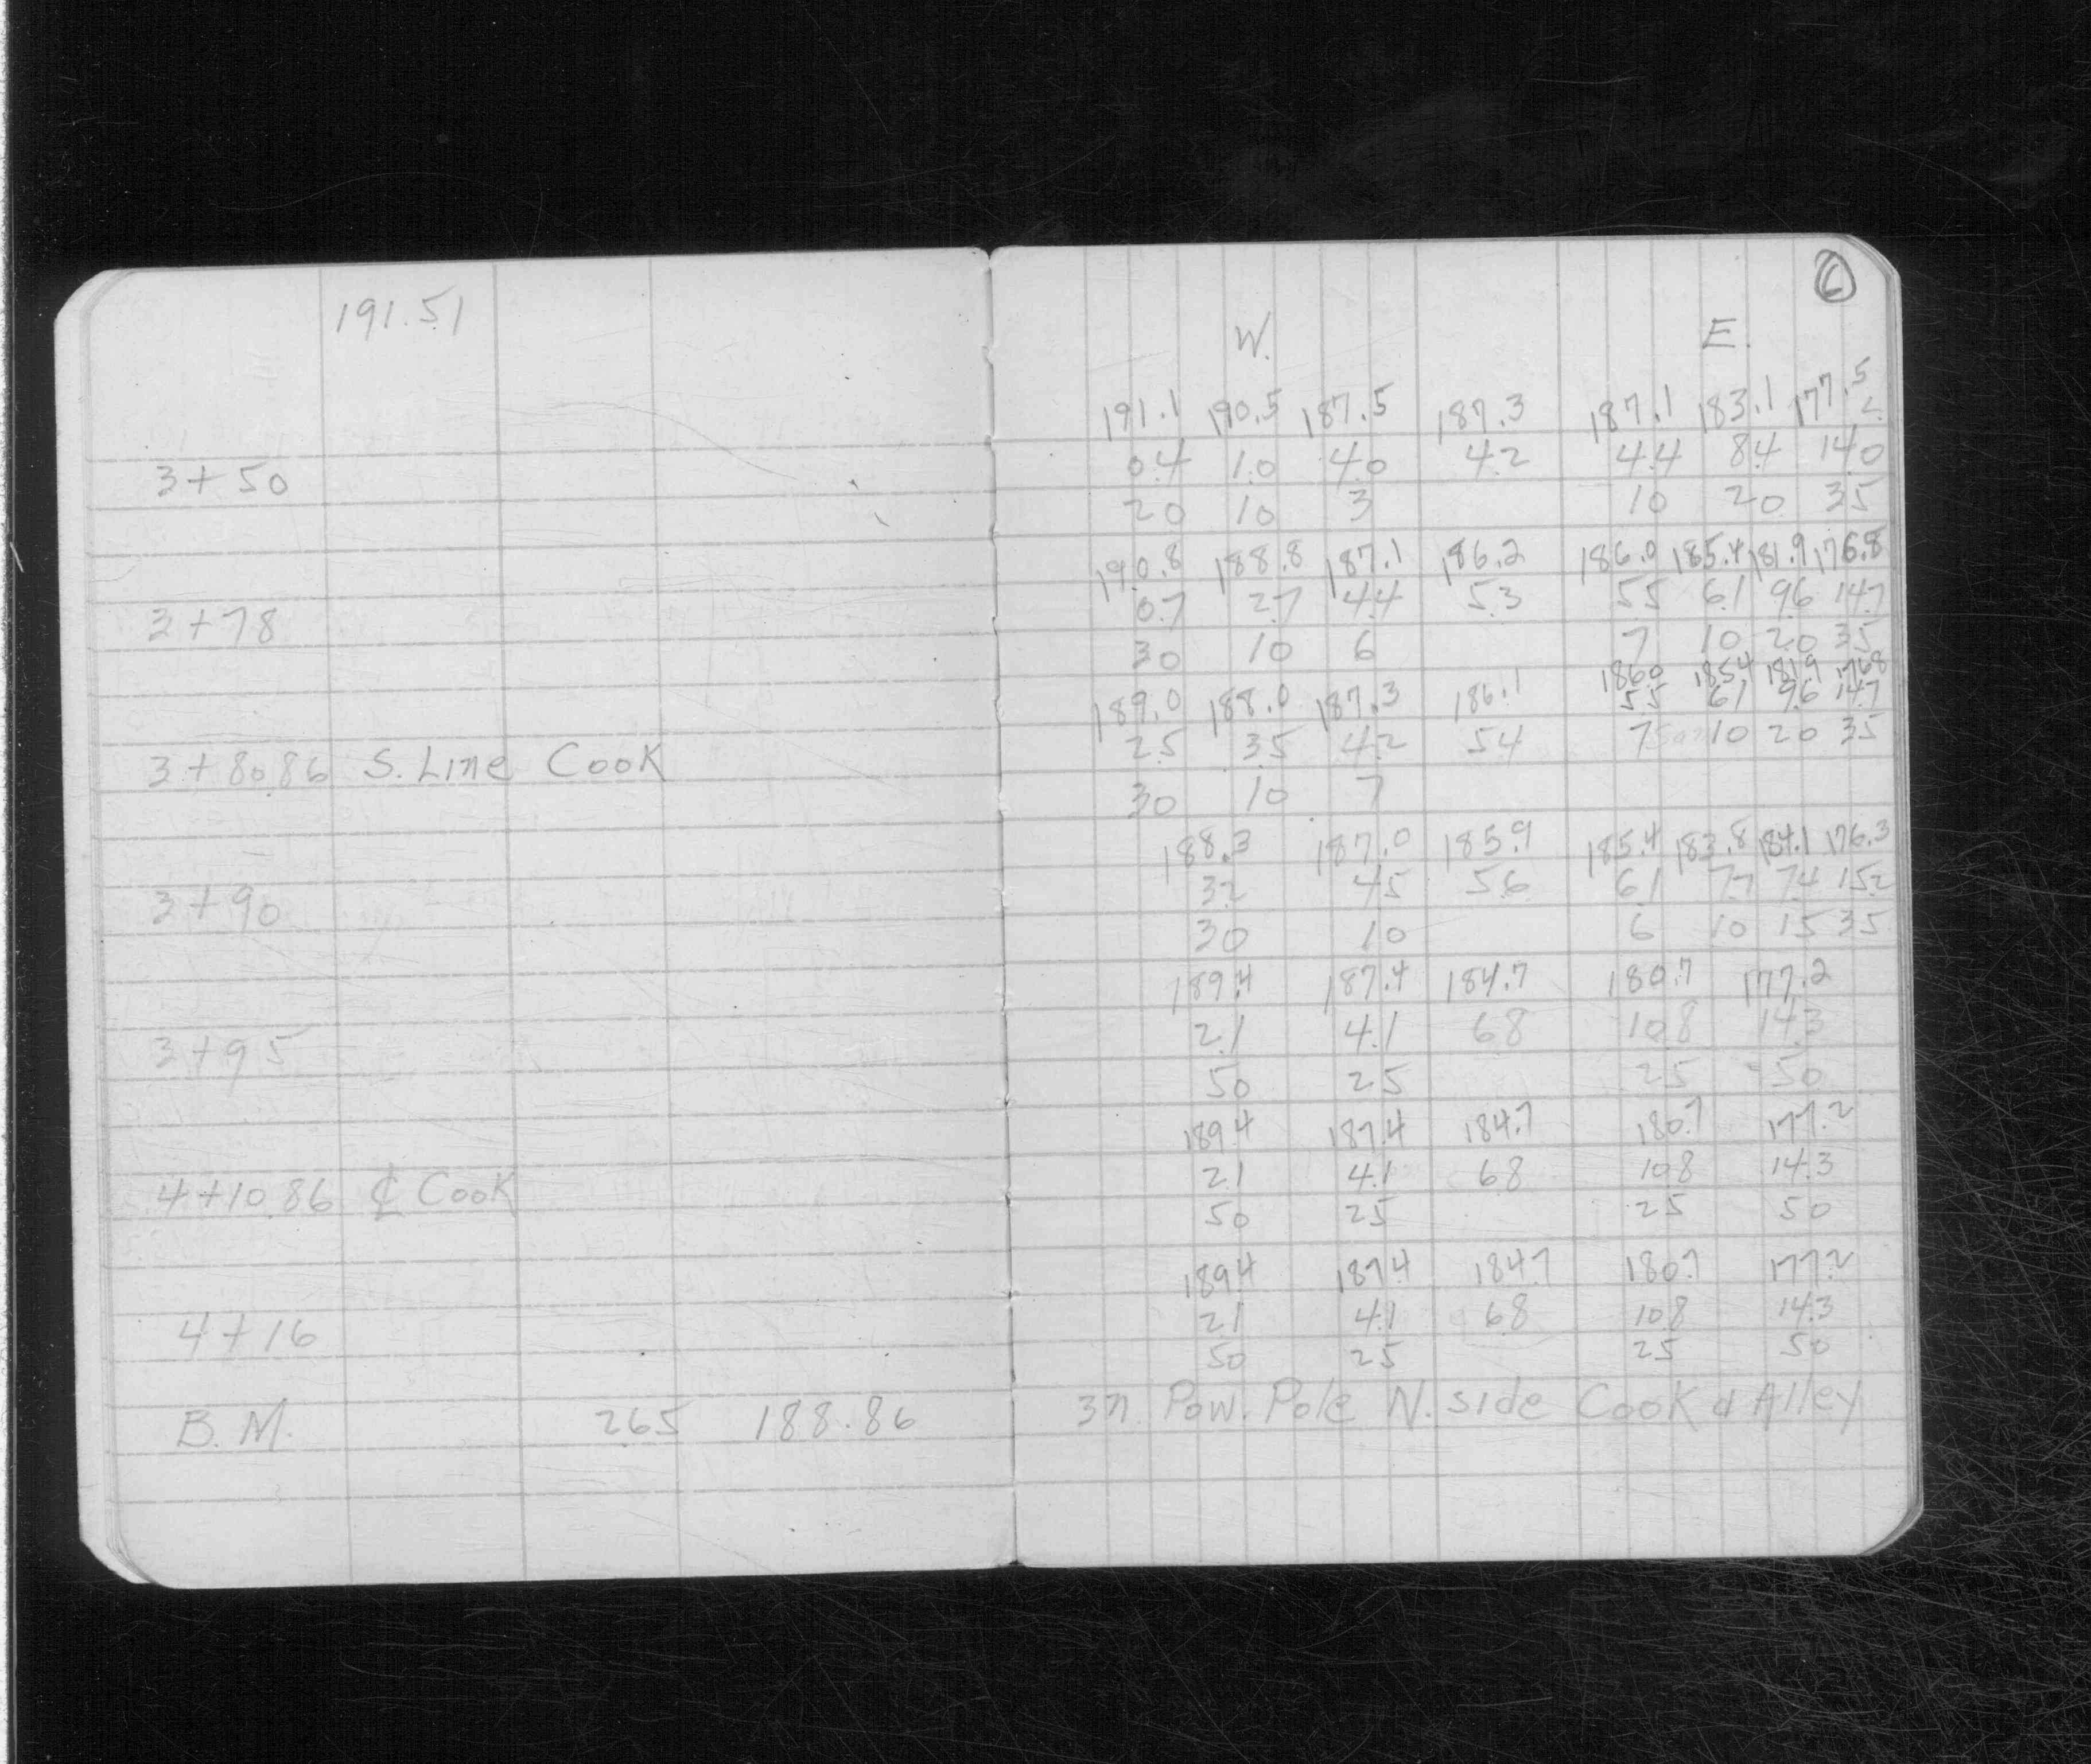 6
191.51
W. E.
191.1 190.5 187.5 187.3 187.1 183.1 177.5
3+50 0.4 1.0 4.0 4.2 4.4 8.4 14.0
20 10 3 10 20 35
190.8 188.8 187.1 186.2 186.0 185.4 181.9 176.8
3+78 0.7 2.7 4.4 5.3 5.5 6.1 9.6 14.7
30 10 6 7 10 20 35
189.0 188.0 187.3 186.1 186.0 185.4 181.9 176.8
5.5 6.1 9.6 14.7
3+80.86 S. Line Cook 2.5 3.5 4.2 5.4 7 10 20 35
30 10 7
188.3 187.0 185.9 185.4 183.8 184.1 176.3
3+90 3.2 4.5 5.6 6.1 7.7 7.4 15.2
30 10 6 10 15 35
189.4 187.4 184.7 180.7 177.2
3+95 2.1 4.1 6.8 10.8 14.3
50 25 25 50
189.4 187.4 184.7 180.7 177.2
4+10.86 ℄ Cook 2.1 4.1 6.8 10.8 14.3
50 25 25 50
189.4 187.4 184.7 180.7 177.2
4+16 2.1 4.1 6.8 10.8 14.3
50 25 25 50
B.M. 2.65 188.86 Pow. Pole N. side Cook & Alley